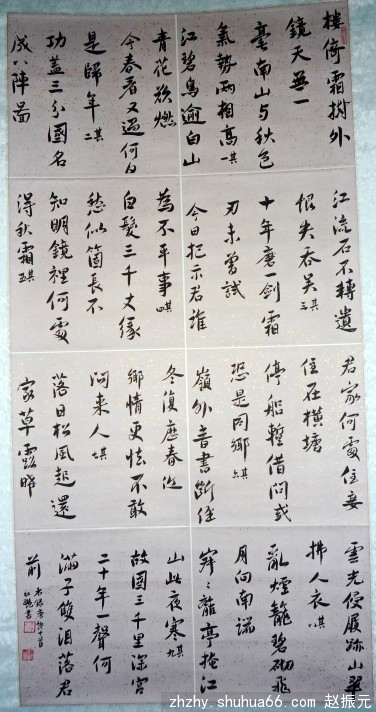 樓倚霜樹外
鏡天無一
毫南山与秋色
氣勢兩相高 其一
江碧鳥逾白山
青花欲燃
今春看又過何日
是歸年 其二
功蓋三分國名
成八陣啚
江流石不轉遺
恨失吞吴 其三
十年磨一劍霜
刃未曾試
今日把示君誰
為不平事 其四
白髮三千丈緣
愁似箇長不
知明鏡裡何處
得秋霜 其五
君家何處住妾
住在橫塘
停船暫借問或
恐是同鄉 其六
嶺外音書斷經
冬復歷春近
鄉情更怯不敢
問來人 其七
落日松風起還
家草露晞
雲光侵履跡山翠
拂人衣 其八
亂煙籠碧砌飛
月向南端
寂々離亭掩江
山此夜寒 其九
故國三千里深宮
二十年一聲何
滿子雙淚落君
前
zhzhy.shuhua66.com 赵振元